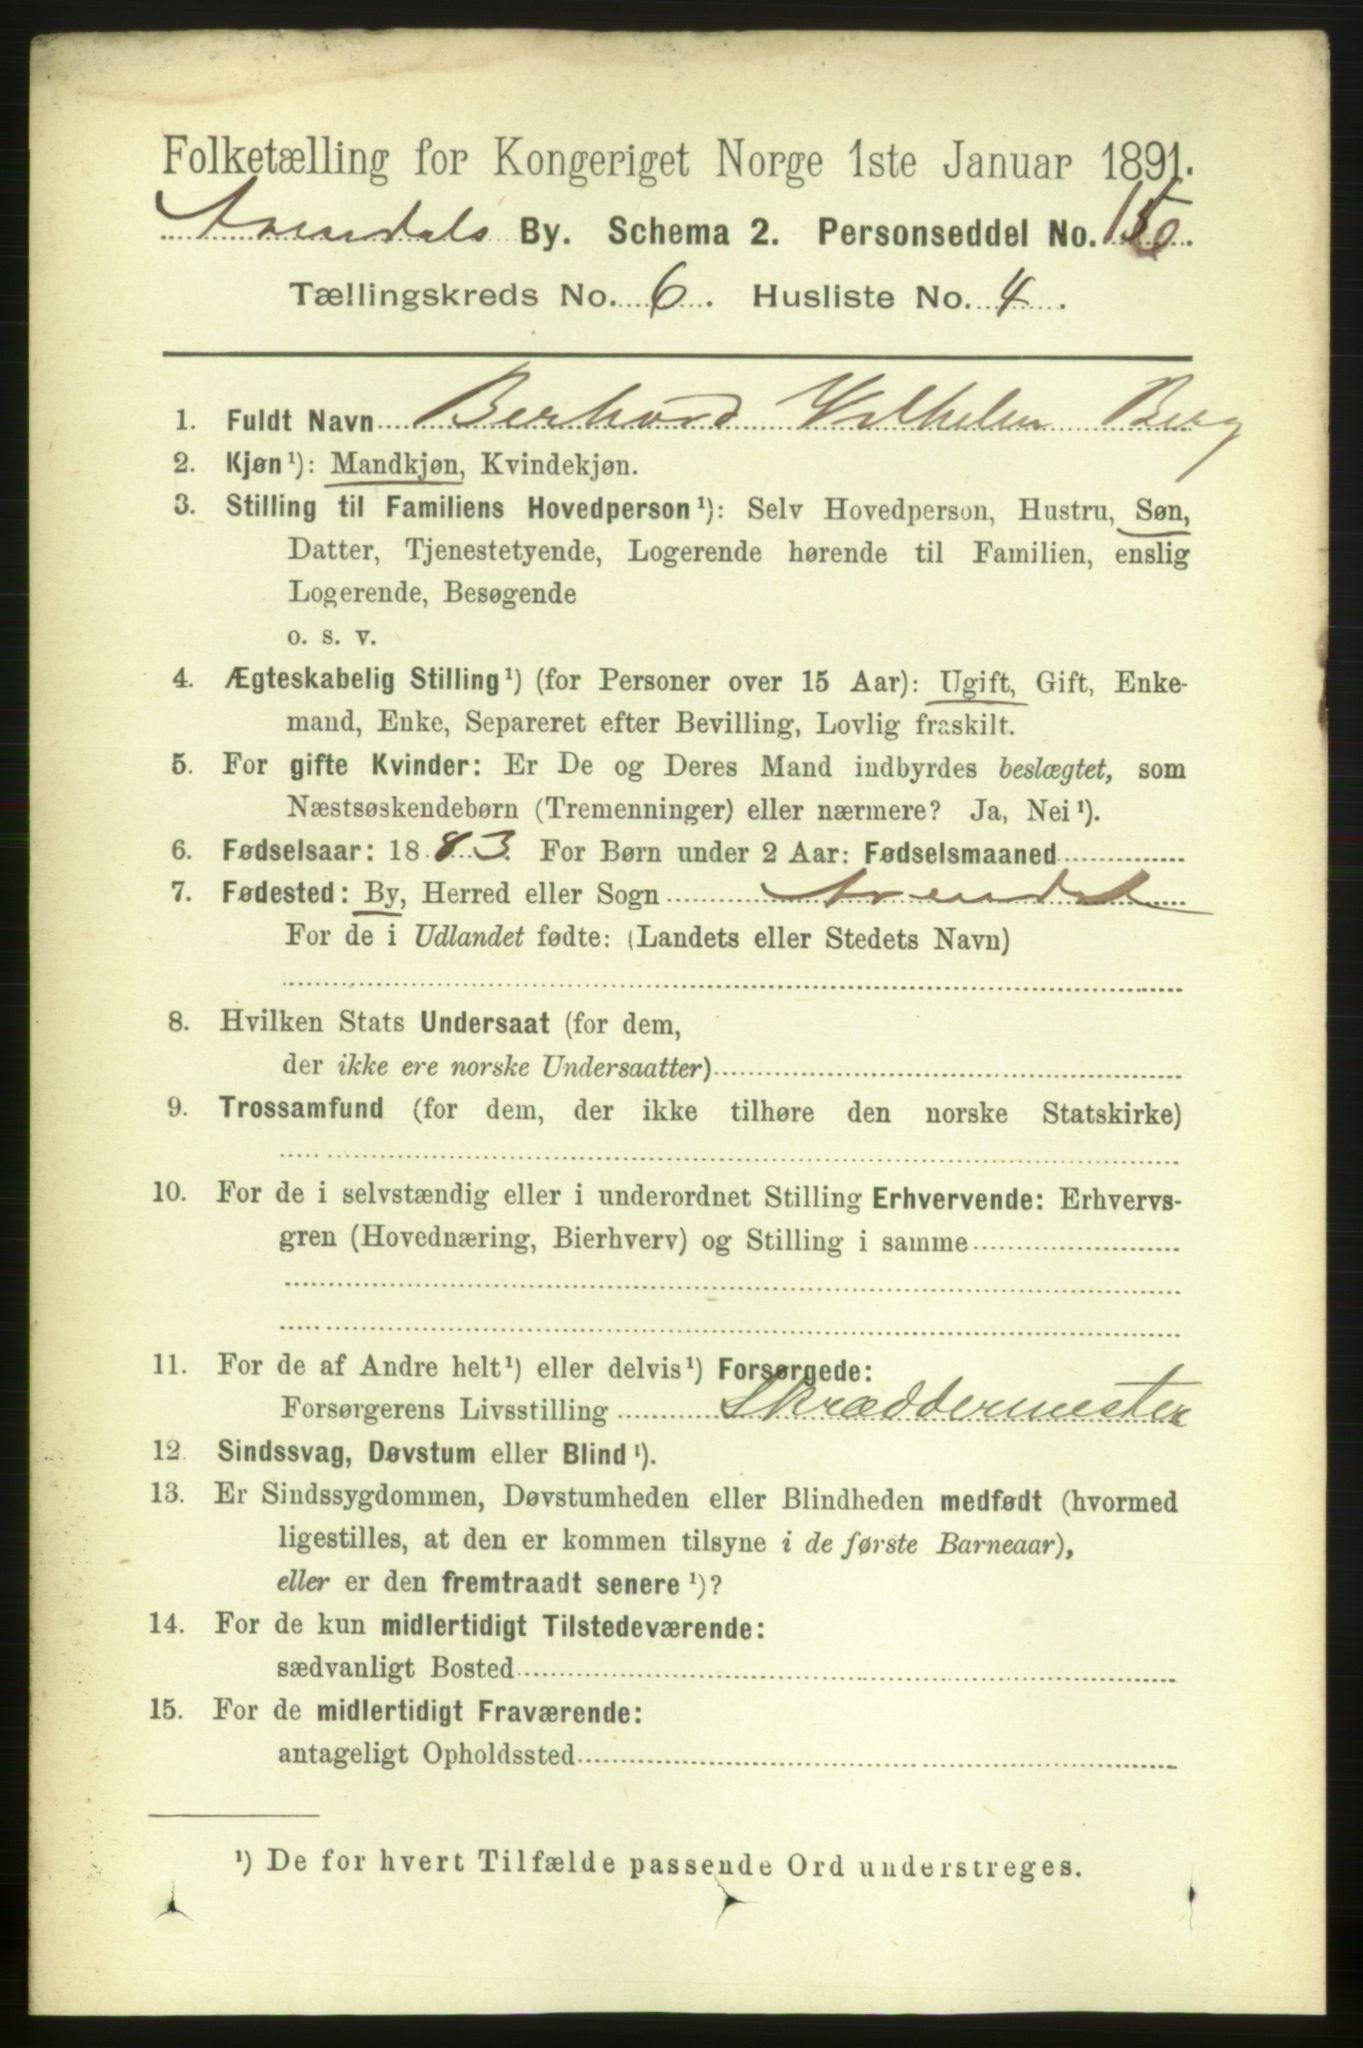 Folketælling for Kongeriget Norge 1ste Januar 1891.
Arendals By. Schema 2. Personseddel No.
Tællingskreds No. 6. Husliste No. 4.
1. Fuldt Navn Berhard Vilhelm Berg
2. Kjøn¹): Mandkjøn, Kvindekjøn.
3. Stilling til Familiens Hovedperson¹): Selv Hovedperson, Hustru, Søn,
Datter, Tjenestetyende, Logerende hørende til Familien, enslig
Logerende, Besøgende
o. s. v.
4. Ægteskabelig Stilling¹) (for Personer over 15 Aar): Ugift, Gift, Enke-
mand, Enke, Separeret efter Bevilling, Lovlig fraskilt.
5. For gifte Kvinder: Er De og Deres Mand indbyrdes beslægtet, som
Næstsøskendebørn (Tremenninger) eller nærmere? Ja, Nei¹).
6. Fødselsaar: 1883. For Børn under 2 Aar: Fødselsmaaned
7. Fødested: By, Herred eller Sogn Arendal
For de i Udlandet fødte: (Landets eller Stedets Navn)
8. Hvilken Stats Undersaat (for dem,
der ikke ere norske Undersaatter)
9. Trossamfund (for dem, der ikke tilhøre den norske Statskirke)
10. For de i selvstændig eller i underordnet Stilling Erhvervende: Erhvervs-
gren (Hovednæring, Bierhverv) og Stilling i samme
11. For de af Andre helt¹) eller delvis¹) Forsørgede:
Forsørgerens Livsstilling Skræddermester
12. Sindssvag, Døvstum eller Blind¹).
13. Er Sindssygdommen, Døvstumheden eller Blindheden medfødt (hvormed
ligestilles, at den er kommen tilsyne i de første Barneaar),
eller er den fremtraadt senere¹)?
14. For de kun midlertidigt Tilstedeværende:
sædvanligt Bosted
15. For de midlertidigt Fraværende:
antageligt Opholdssted
¹) De for hvert Tilfælde passende Ord understreges.